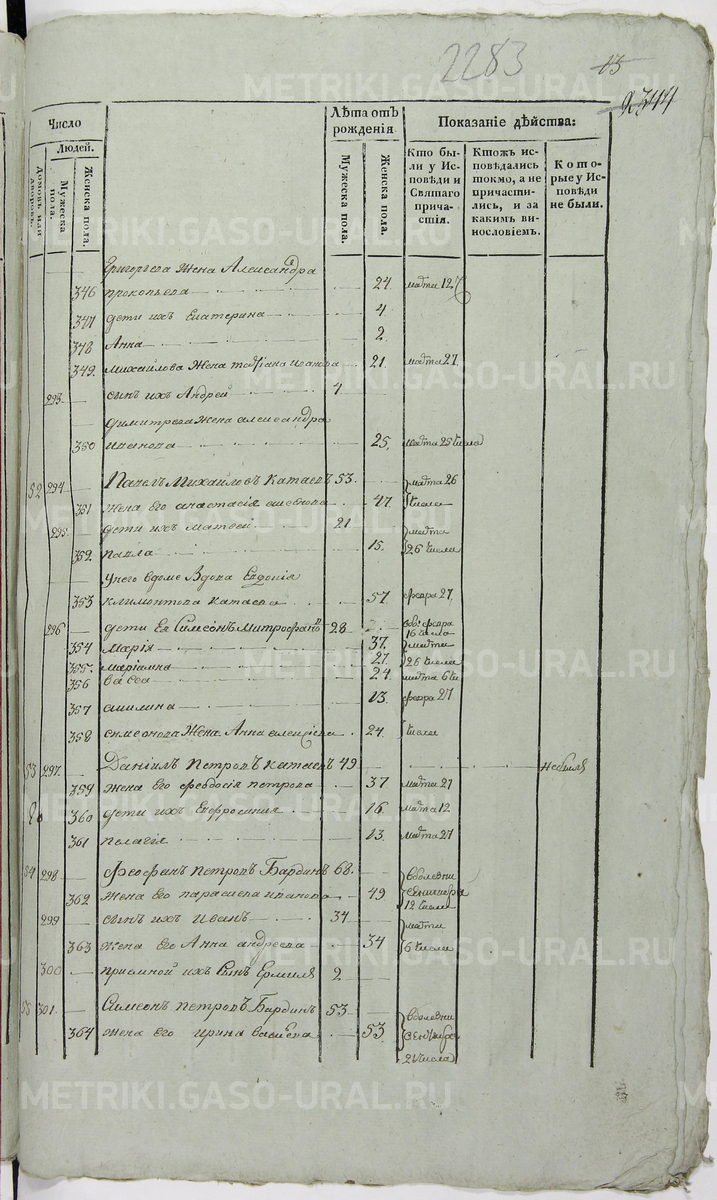 2283
13
2344
Число
Людей.
Домовъ или дворовъ.
Мужеска пола.
Женска пола.
Лѣта отъ рожденія
Мужеска пола.
Женска пола.
Показаніе дѣйства:
Кто бы-
ли у Ис-
повѣди и
Святаго
прича-
стія.
Ктожъ ис-
повѣдались
токмо, а не
причасти-
лись, и за
какимъ ви-
нословіемъ.
Кото-
рые у Ис-
повѣди
не были.
Григорьева жена Александра
346 прокопьева 24 марта 12
347 дети ихъ Екатерина 4
348 Анна 2
349 михайлова жена татіана иванова 21. марта 27
293. сынъ ихъ Андрей 1
димитрева жена александра
350 иванова 25. марта 25 числа
52 294 Павелъ Михайловъ Катаевъ 53. марта 26
351 жена его анастасія 47. числа
295. дети ихъ матвей 21 марта
352 павла 15. 26 числа
унего вдоме Вдова Евдокія
353 климонтова катаева 57. февра 27
296 дети Ея Симеонъ Митрофанъ 28 февра
16 числа
354 марія 37. марта
355. маріамна 27. 26 числа
356 васса 24 марта 6 чи
357 акилина 13 февра 27
358 симеонова жена Анна алексіева 24. числа
53 297. Даніилъ Петровъ Катаевъ 49 небылъ
359 жена его феодосія петрова 37 марта 27
360 дети ихъ Евфросинія 16 марта 12
361 пелагія 13 марта 27
54 298 Феофанъ петровъ Бардинъ 68. вболезни
362 жена его параскева иванова 49 сентября
12 числа
299 сынъ ихъ Иванъ 34 марта
363 жена его Анна андреева 34 6 числа
300 приемной ихъ сынъ Ермилъ 2
55 301. Симеонъ петровъ Бардинъ 53 вболезни
364 жена его ирина 53 сентября
2 числа
METRIKI.GASO-URAL.RU